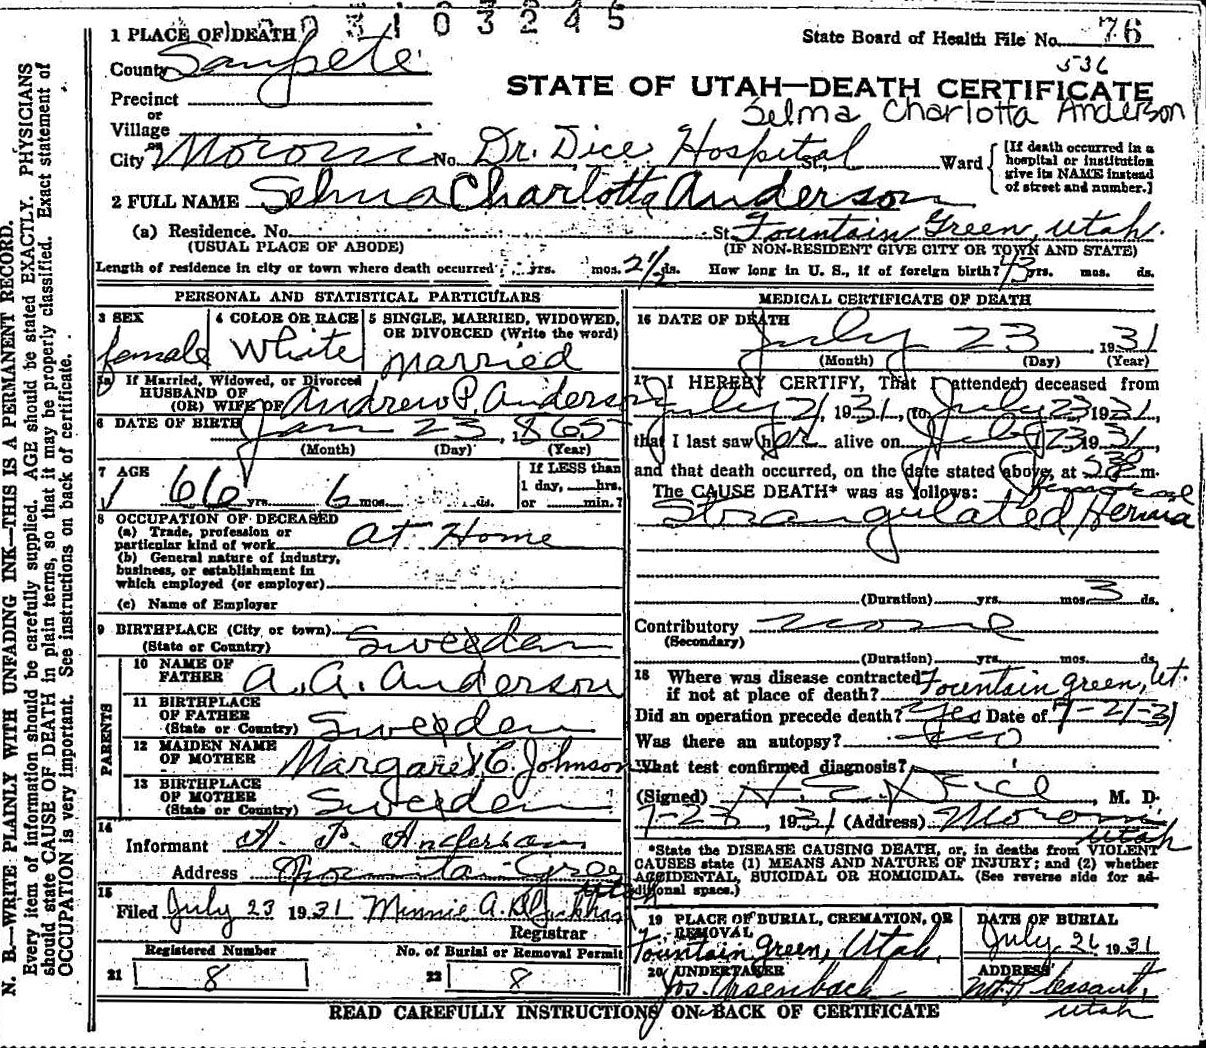 3 1 0 3 2 4 5
State Board of Health File No. 76
536
STATE OF UTAH—DEATH CERTIFICATE
Selma Charlotta Anderson
1 PLACE OF DEATH
County Sanpete
Precinct
or
Village
or
City Moroni No. Dr. Dice Hospital St., Ward
[If death occurred in a hospital or institution give its NAME instead of street and number.]
2 FULL NAME Selma Charlotta Anderson
(a) Residence. No. St. Fountain Green, Utah.
(USUAL PLACE OF ABODE) (IF NON-RESIDENT GIVE CITY OR TOWN AND STATE)
Length of residence in city or town where death occurred yrs. mos. 2 1/2 ds. How long in U. S., if of foreign birth? 43 yrs. mos. ds.
PERSONAL AND STATISTICAL PARTICULARS
3 SEX
female
4 COLOR OR RACE
White
5 SINGLE, MARRIED, WIDOWED, OR DIVORCED (Write the word)
married
5a If Married, Widowed, or Divorced
HUSBAND OF
(OR) WIFE OF Andrew P. Anderson
6 DATE OF BIRTH Jan 23, 1865
(Month) (Day) (Year)
7 AGE
66 yrs. 6 mos. ds.
If LESS than
1 day, hrs.
or min.?
8 OCCUPATION OF DECEASED
(a) Trade, profession or
particular kind of work At Home
(b) General nature of industry,
business, or establishment in
which employed (or employer)
(c) Name of Employer
9 BIRTHPLACE (City or town)
(State or Country) Sweeden
PARENTS
10 NAME OF
FATHER A. A. Anderson
11 BIRTHPLACE
OF FATHER
(State or Country) Sweeden
12 MAIDEN NAME
OF MOTHER Margaret C. Johnson
13 BIRTHPLACE
OF MOTHER
(State or Country) Sweeden
14
Informant A. P. Anderson
Address Fountain Green
Utah
15
Filed July 23 1931 Minnie A.
Registrar
Registered Number No. of Burial or Removal Permit
21 8 22 8
MEDICAL CERTIFICATE OF DEATH
16 DATE OF DEATH
July 23, 1931
(Month) (Day) (Year)
17 I HEREBY CERTIFY, That I attended deceased from
July 21, 1931, to July 23 1931,
that I last saw her alive on July 23 1931
and that death occurred, on the date stated above, at m.
The CAUSE DEATH* was as follows: Femoral
Strangulated Hernia
(Duration) yrs. mos. 3 ds.
Contributory none
(Secondary)
(Duration) yrs. mos. ds.
18 Where was disease contracted
if not at place of death? Fountain green, Ut.
Did an operation precede death? Yes Date of 7-21-31
Was there an autopsy? no
What test confirmed diagnosis?
(Signed) H. E. Dice, M. D.
7-23, 1931 (Address) Moroni
Utah
*State the DISEASE CAUSING DEATH, or, in deaths from VIOLENT
CAUSES state (1) MEANS AND NATURE OF INJURY; and (2) whether
ACCIDENTAL, SUICIDAL OR HOMICIDAL. (See reverse side for ad-
ditional space.)
19 PLACE OF BURIAL, CREMATION, OR
REMOVAL
Fountain green, Utah.
DATE OF BURIAL
July 26 1931
20 UNDERTAKER
Jos. Ursenbach
ADDRESS
Mt. Pleasant,
Utah
READ CAREFULLY INSTRUCTIONS ON BACK OF CERTIFICATE
N. B.—WRITE PLAINLY WITH UNFADING INK—THIS IS A PERMANENT RECORD.
Every item of information should be carefully supplied. AGE should be stated EXACTLY. PHYSICIANS
should state CAUSE OF DEATH in plain terms, so that it may be properly classified. Exact statement of
OCCUPATION is very important. See instructions on back of certificate.